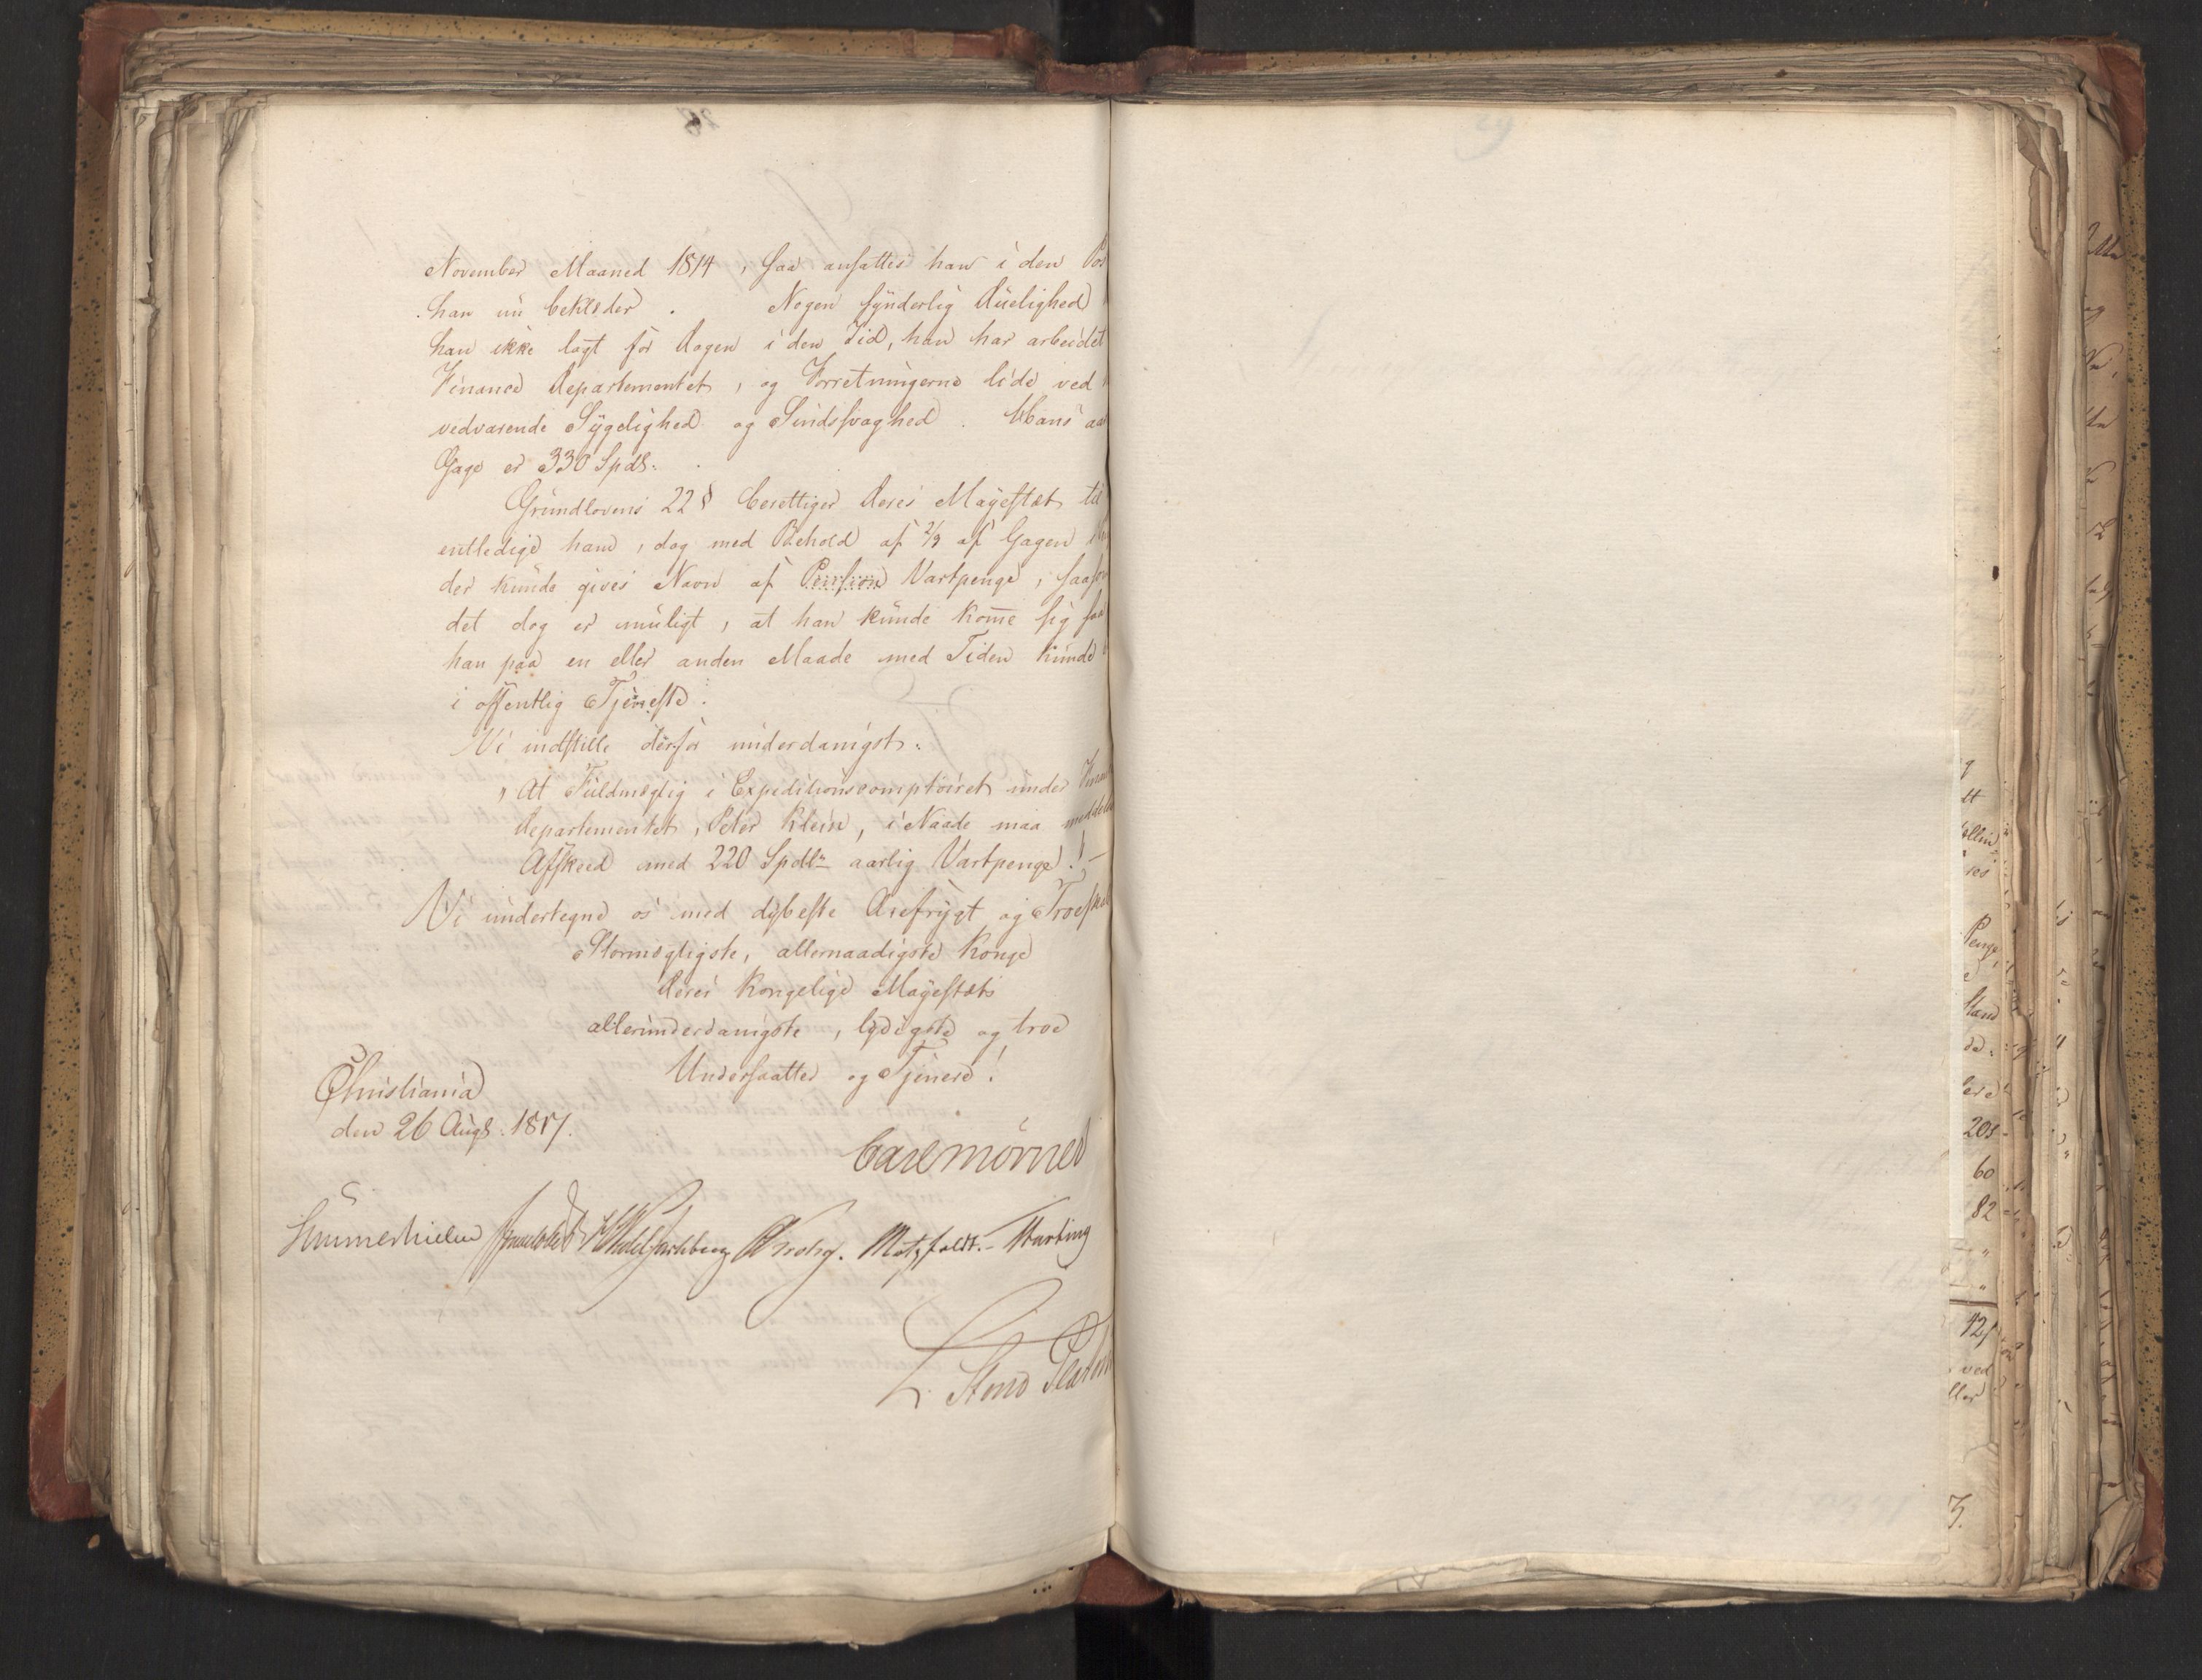 November Maaned 1814, saa ansattes han i den Pos
han nu beklæder. Nogen synderlig Duelighed
han ikke lagt for Dagen i den Tid, han har arbeidet
Finance Departementet, og Forretningerne lide ved
vedvarende Sygelighed og Sindssvaghed. Hans aa
Gage er 330 Spdl:
Grundlovens 22 § berettiger Deres Majestæt til
entledige ham, dog med Behold af 2/3 af Gagen
der kunde gives Navn af Pension Vartpenge, saasom
det dog er muligt, at han kunde kom̄e sig saa
han paa en eller anden Maade med Tiden kunde
i offentlig Tjeneste.
Vi indstille derfor underdanigst:
"At Fuldmægtig i Expeditionscomptoiret under Financ
Departementet, Peter Klein, i Naade maa meddeles
Afskeed med 220 Spdlr aarlig Vartpenge!" -
Vi undertegne os med dybeste Ærefrygt og Troeskab
Stormægtigste, allernaadigste Konge
Deres Kongelige Majestæts
allerunderdanigste, lydigste og troe
Undersaatter og Tjenere!
Christiania
den 26 Augs: 1817.
Carl Mörner
Hummerhielm Wedel Jarlsberg Krohg. Motzfeldt. Harbing